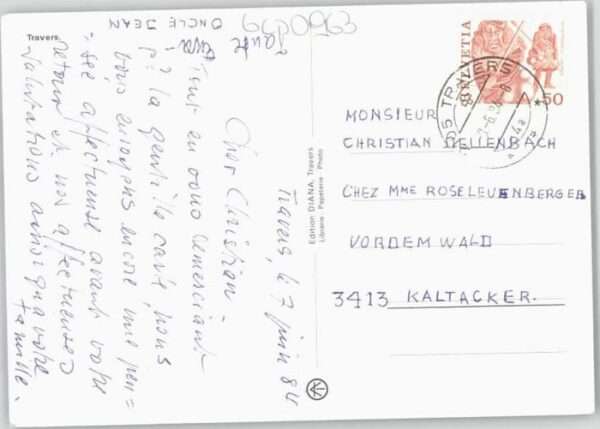 Travers.
6gp0963
Travers, le 7 juin 84
Cher Christian -
Tout en vous remerciant
p. la gentille carte, nous
vous envoyons encore une pen=
sée affectueuse avant votre
retour et nos affectueuses
salutations ainsi qu'à votre
famille -
ONCLE JEAN
Edition DIANA, Travers
Librairie Papeterie Photo
HELVETIA
50
TRAVERS
MONSIEUR
CHRISTIAN DELLENBACH
CHEZ MME ROSE LEUENBERGER
VORDEMWALD
3413 KALTACKER.